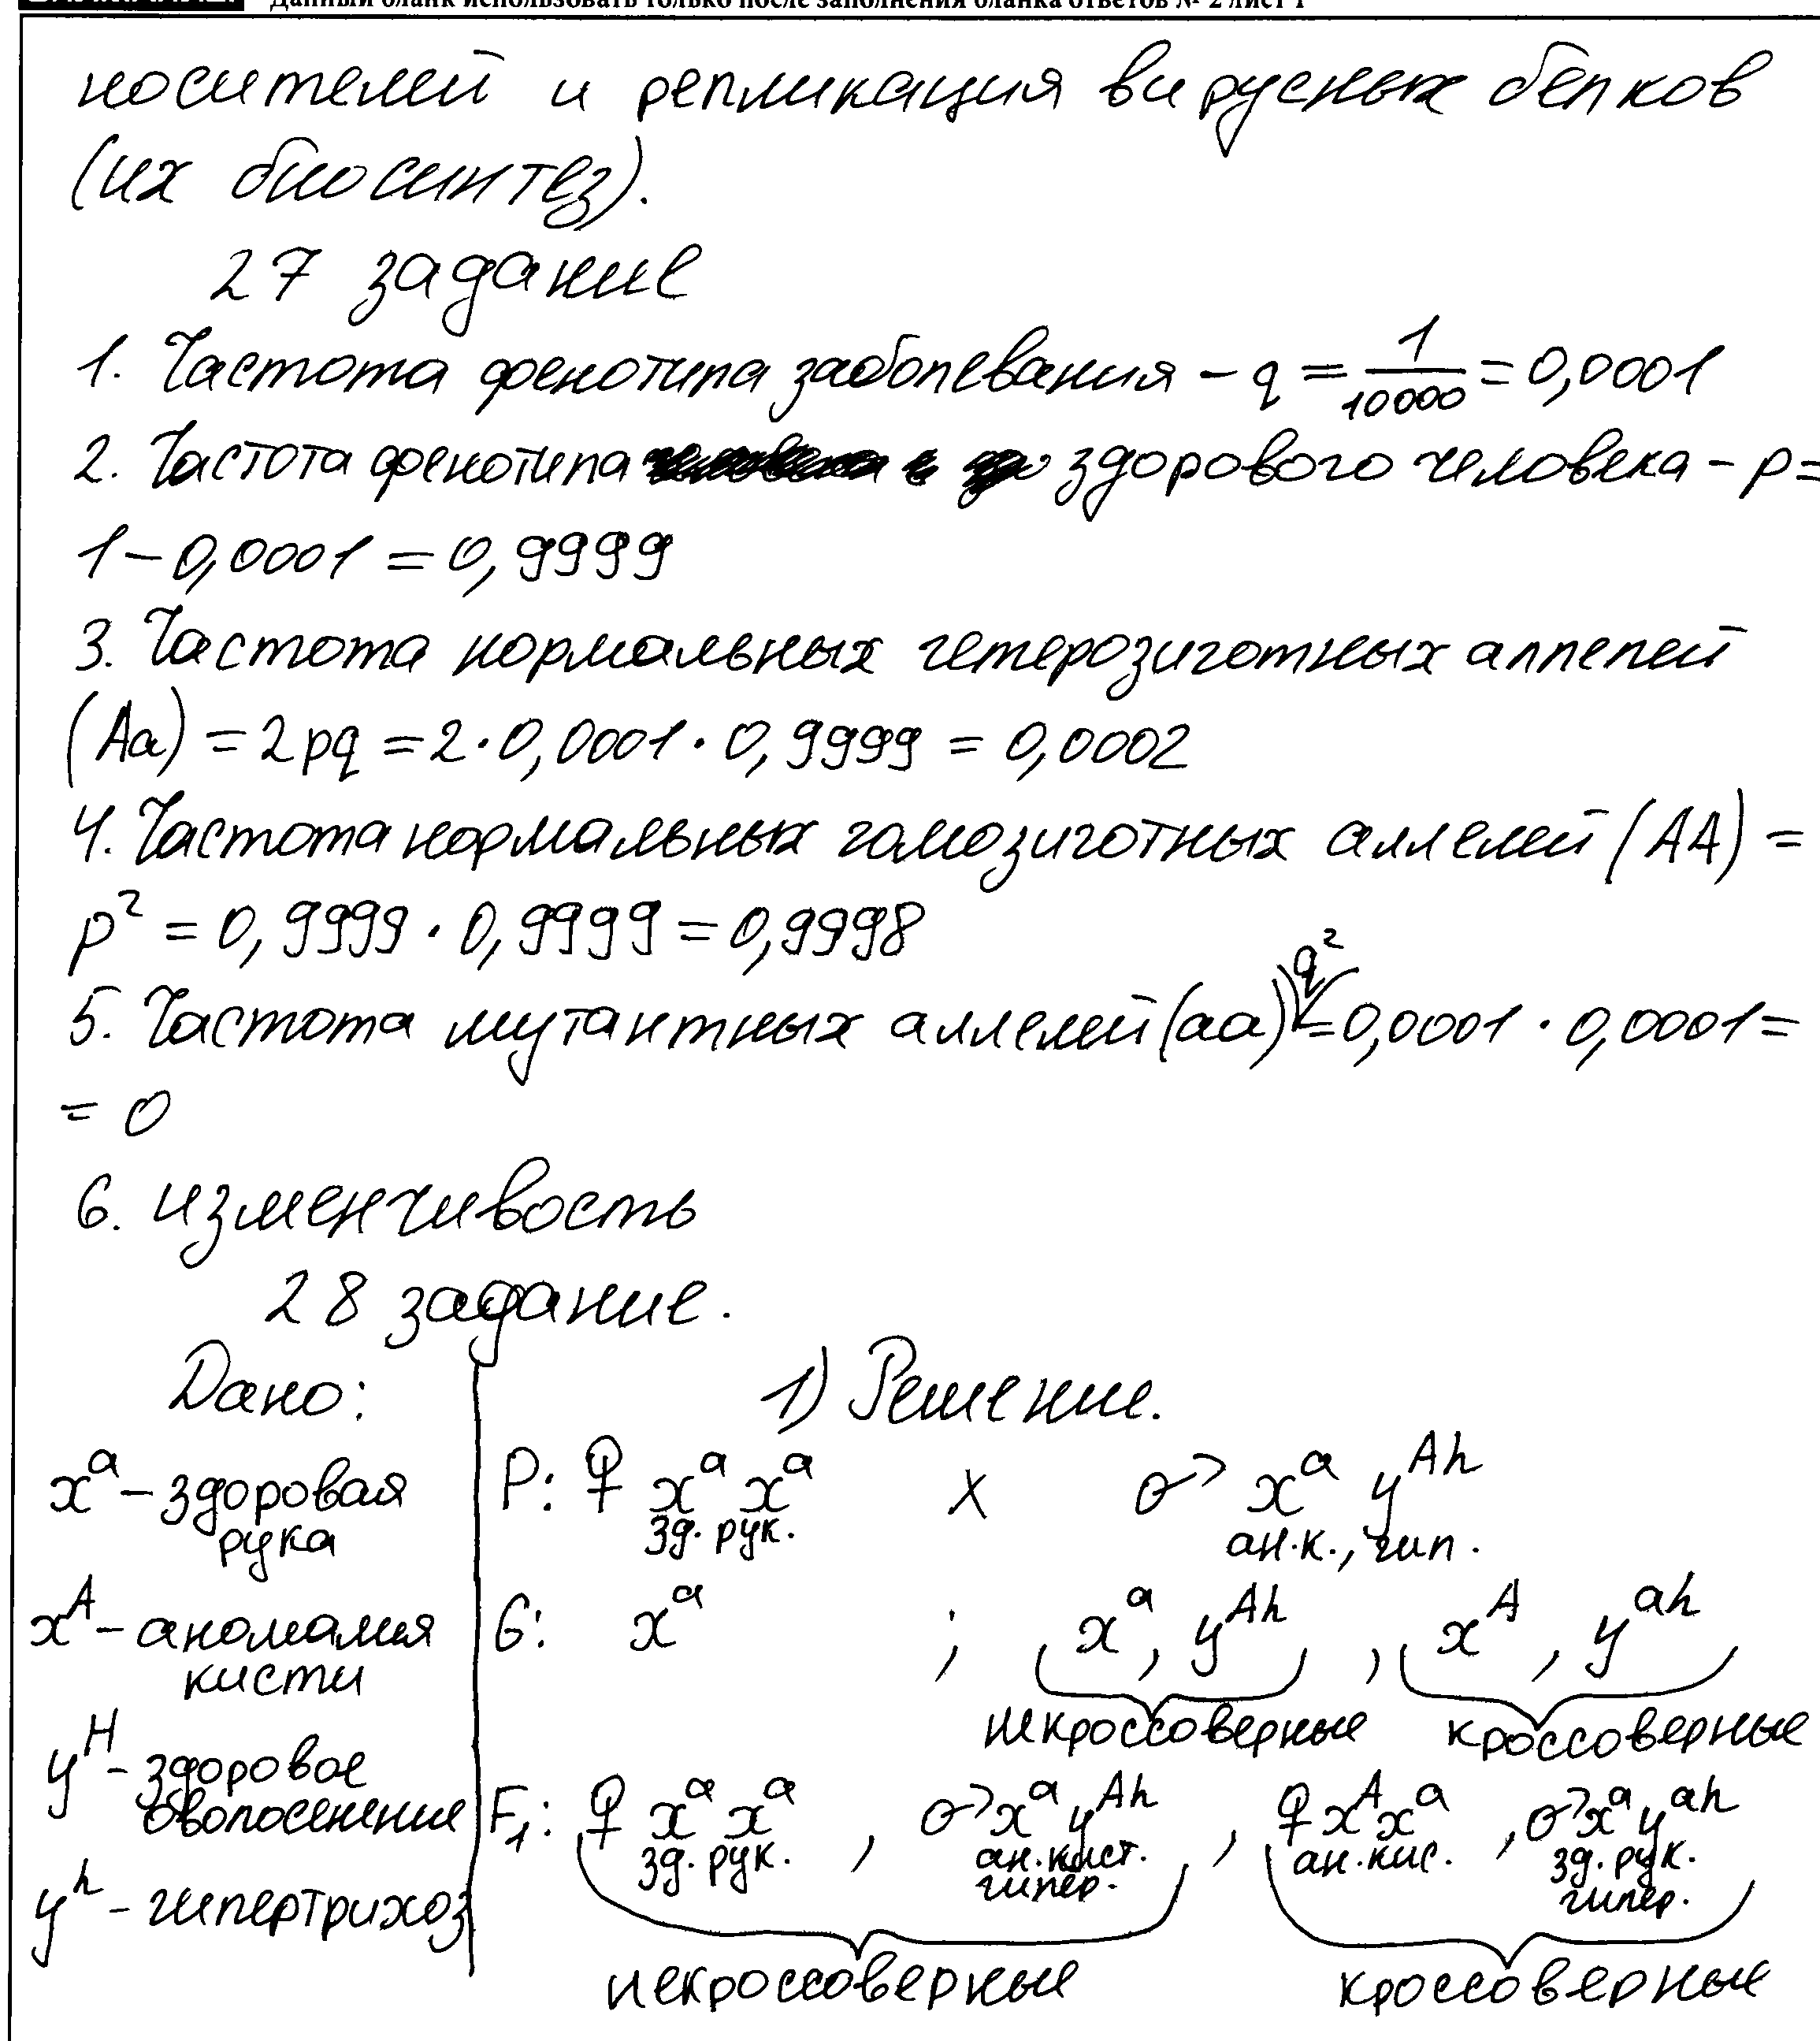 Данный бланк использовать только после заполнения бланка ответов № 2 лист 1
носителей и репликация вирусных белков
(их биосинтез).
27 задание
1. Частота фенотипа заболевания – q = 1/10000 = 0,0001
2. Частота фенотипа здорового человека – p =
1 – 0,0001 = 0,9999
3. Частота нормальных гетерозиготных аллелей
(Aa) = 2pq = 2 · 0,0001 · 0,9999 = 0,0002
4. Частота нормальных гомозиготных аллелей (AA) =
p² = 0,9999 · 0,9999 = 0,9998
5. Частота мутантных аллелей (aa) q² = 0,0001 · 0,0001 =
= 0
6. изменчивость
28 задание.
Дано:
xᵃ – здоровая
рука
xᴬ – аномалия
кисти
yᴴ – здоровое
оволосенение
yʰ – гипертрихоз
1) Решение.
P: ♀ xᵃ xᵃ х ♂ xᵃ yᴬʰ
зд. рук. ан.к., гип.
G: xᵃ ; xᵃ, yᴬʰ , xᴬ, yᵃʰ
некроссоверные кроссоверные
F₁: ♀ xᵃ xᵃ , ♂ xᵃ yᴬʰ , ♀ xᴬ xᵃ , ♂ xᵃ yᵃʰ
зд. рук. ан. кист. ан. кис. зд. рук.
гипер. гипер.
некроссоверные кроссоверные